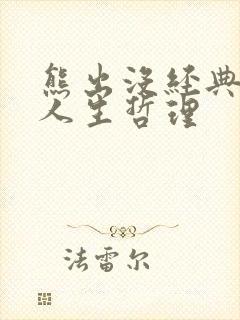 熊出没經典
人生哲理
法雷尔